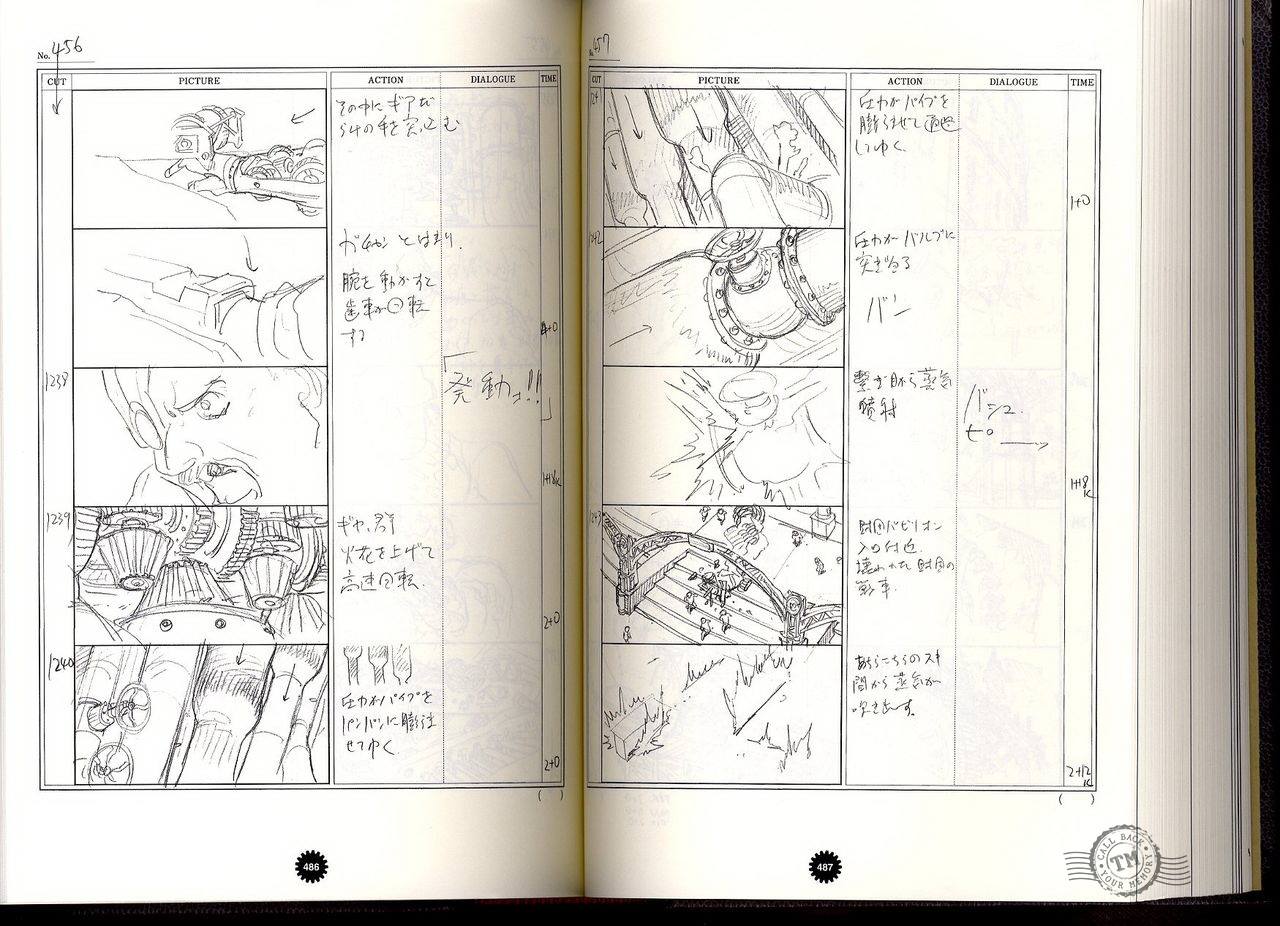 No. 456
CUT PICTURE ACTION DIALOGUE TIME
その中にギアだ
らけの手を突っ込む
ガチャンとはまり、
腕を動かすと
歯車が回転
する
4+0
1238
「発動ォ!!」
1+18K
1239
ギヤ群
火花を上げて
高速回転.
2+0
1240
圧力がパイプを
パンパンに膨らま
せてゆく
2+0
( )
486
457
CUT PICTURE ACTION DIALOGUE TIME
1241
圧力がパイプを
膨らませて通過
してゆく
1+0
1242
圧力がバルブに
突き当る
バン
繋ぎ目から蒸気
噴射
バシュ
1+18K
1243
財団パビリオン
入口付近.
壊れた財団の
あちらこちらのスキ
間から蒸気が
吹き出す。
2+12K
( )
487
CALL BACK
TM
YOUR MEMORY